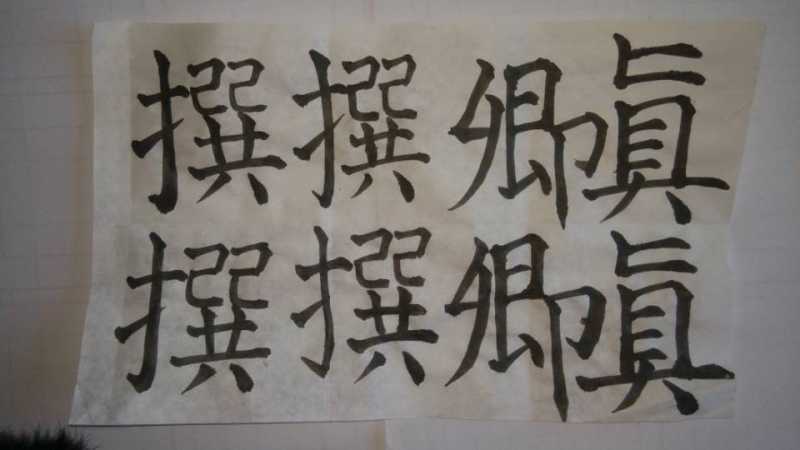 眞眞
卿卿
撰撰
撰撰